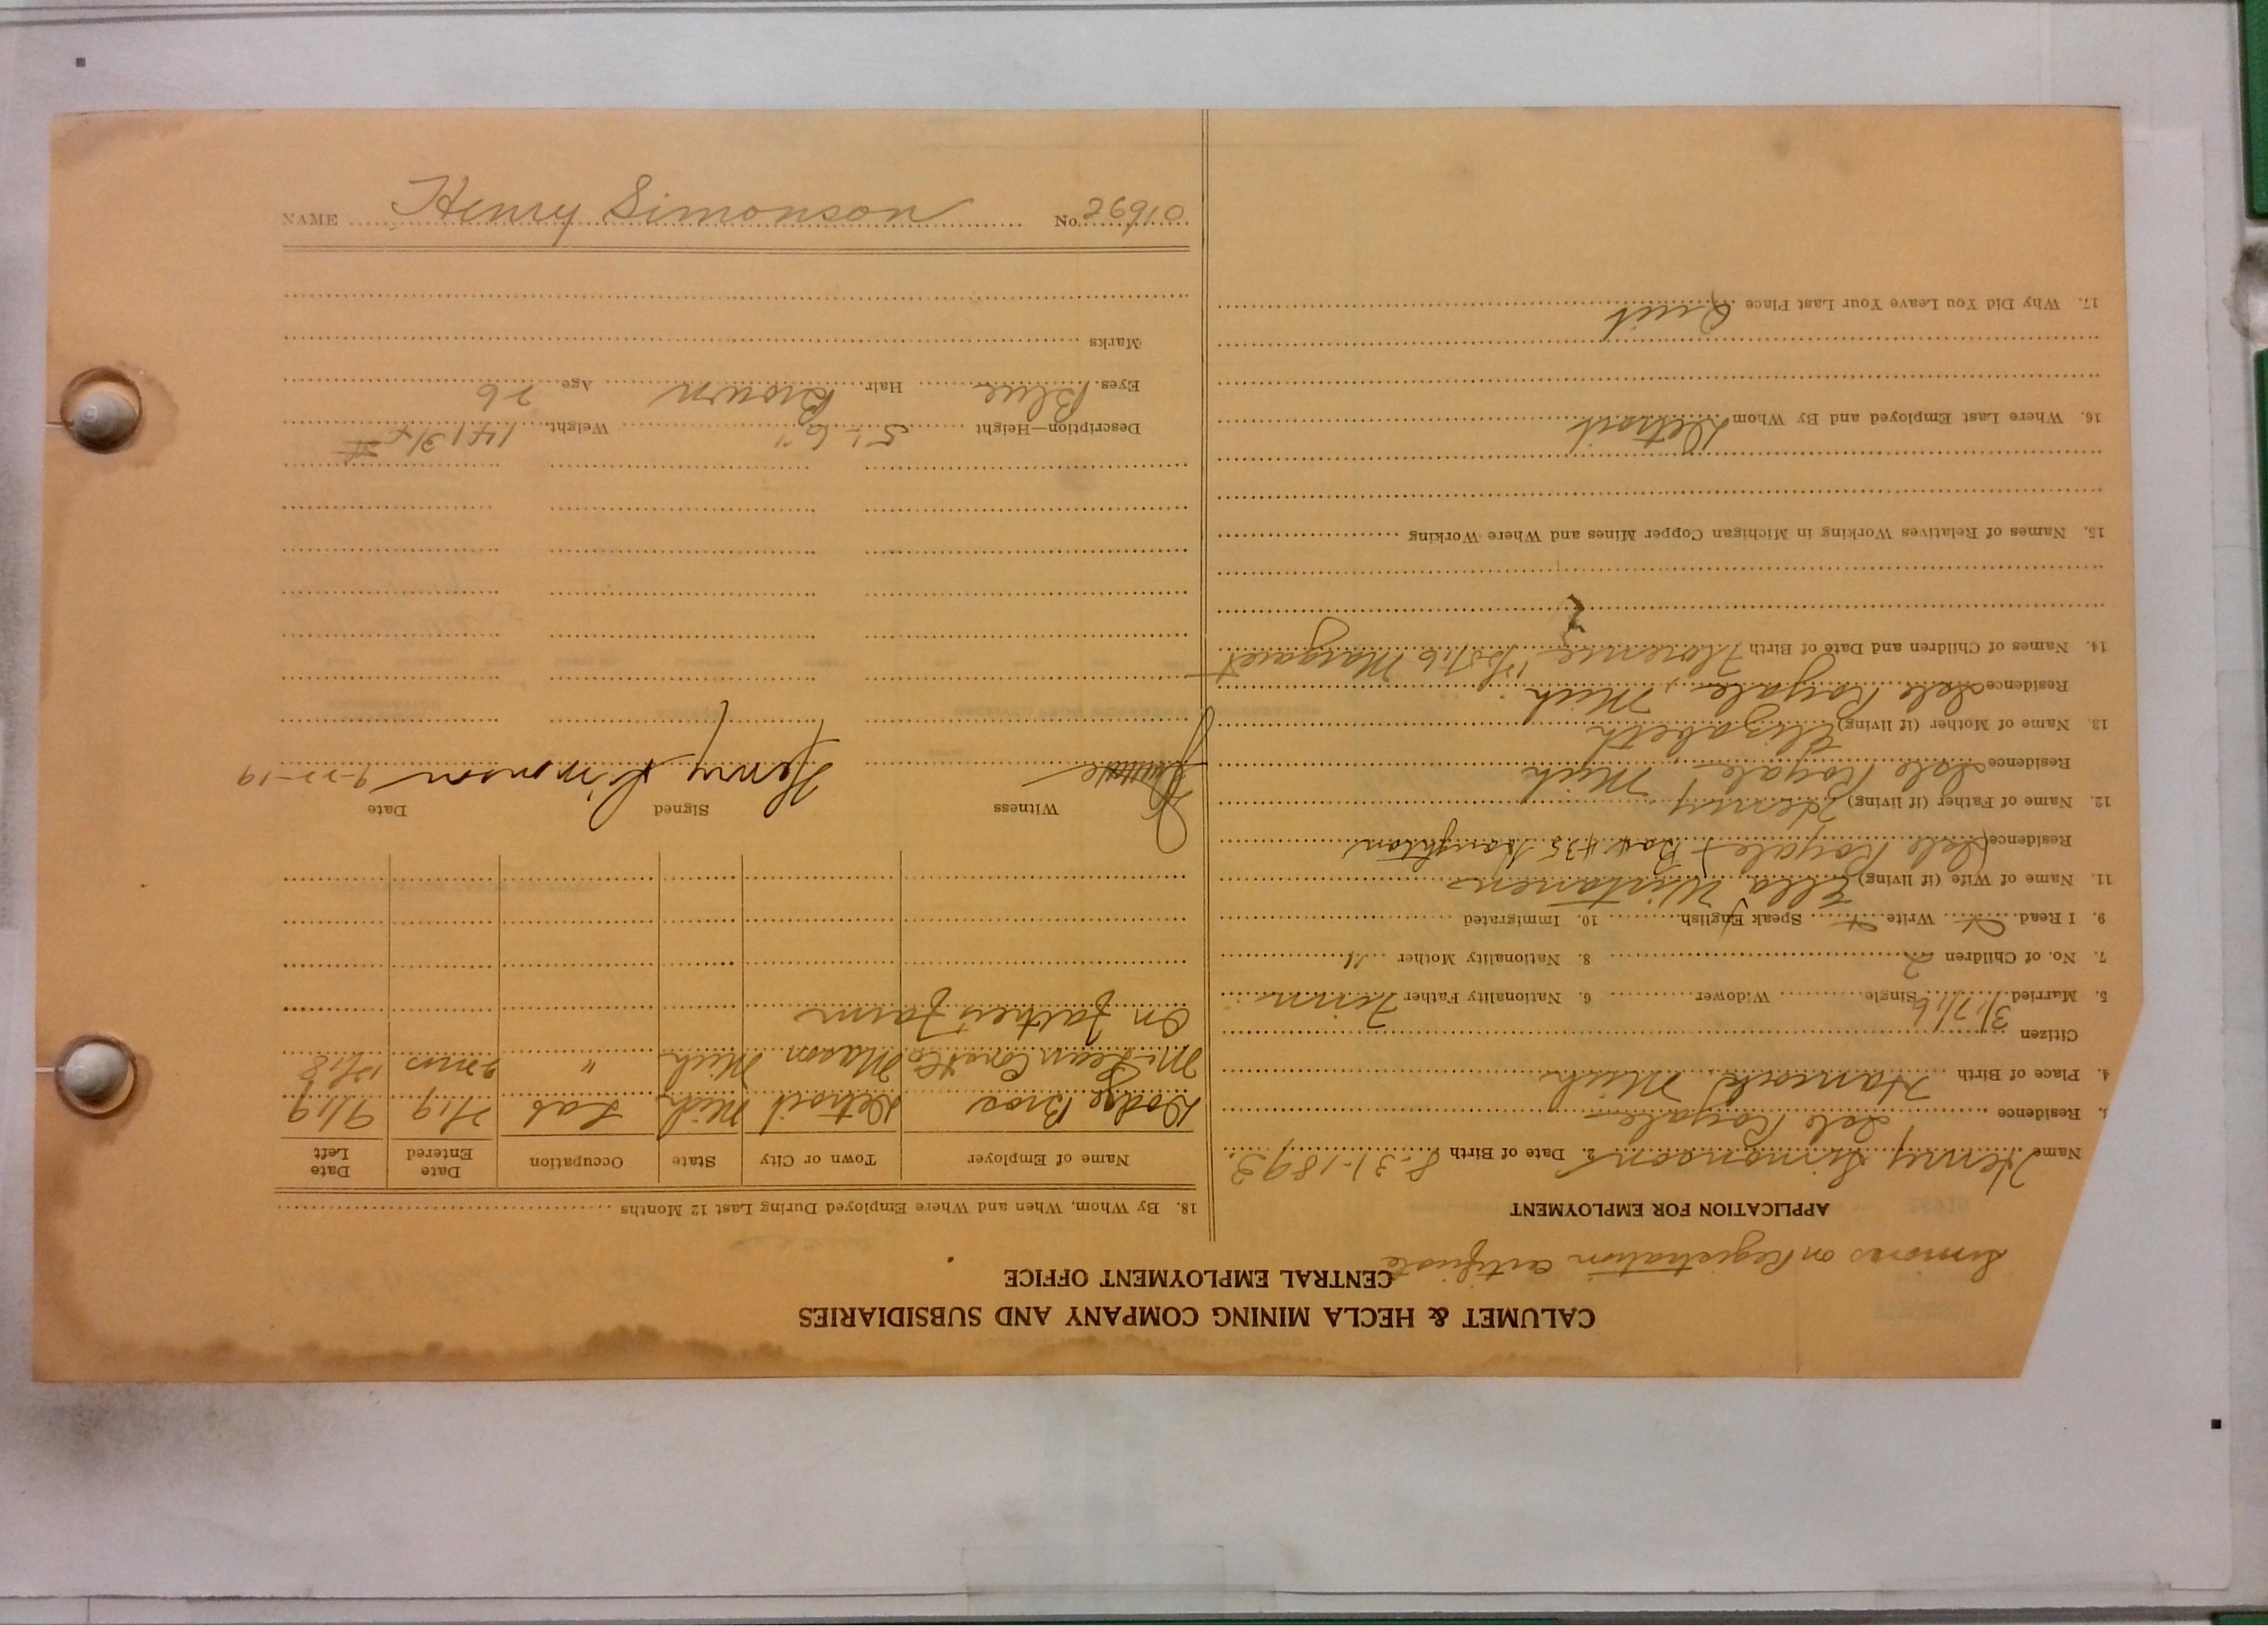 CALUMET & HECLA MINING COMPANY AND SUBSIDIARIES
CENTRAL EMPLOYMENT OFFICE
Simones on Registration Certificate
APPLICATION FOR EMPLOYMENT
Name Henry Simonson 2. Date of Birth 8-31-1893
3. Residence Isle Royale
4. Place of Birth Hancock, Mich
Citizen
5. Married 3/17/16 Single Widower 6. Nationality Father Finn
7. No. of Children 2 8. Nationality Mother "
9. I Read Write Speak English 10. Immigrated
11. Name of Wife (if living) Ella
Residence (Isle Royale) Box 435 Houghton
12. Name of Father (if living) Henry
Residence Isle Royale, Mich
13. Name of Mother (if living) Elizabeth
Residence Isle Royale, Mich
14. Names of Children and Date of Birth Florence Margaret
15. Names of Relatives Working in Michigan Copper Mines and Where Working
16. Where Last Employed and By Whom Detroit
17. Why Did You Leave Your Last Place Quit
18. By Whom, When and Where Employed During Last 12 Months
Name of Employer Town or City State Occupation Date Entered Date Left
Dodge Bros Detroit Mich Lab 7/19 9/19
McLean Const Co Mason Mich " 2 mos
On Father's Farm
Witness Signed Date
Henry Simonson 9-22-19
Description—Height 5'-6" Weight 141 3/4 #
Eyes Blue Hair Brown Age 26
Marks
NAME Henry Simonson No. 26910